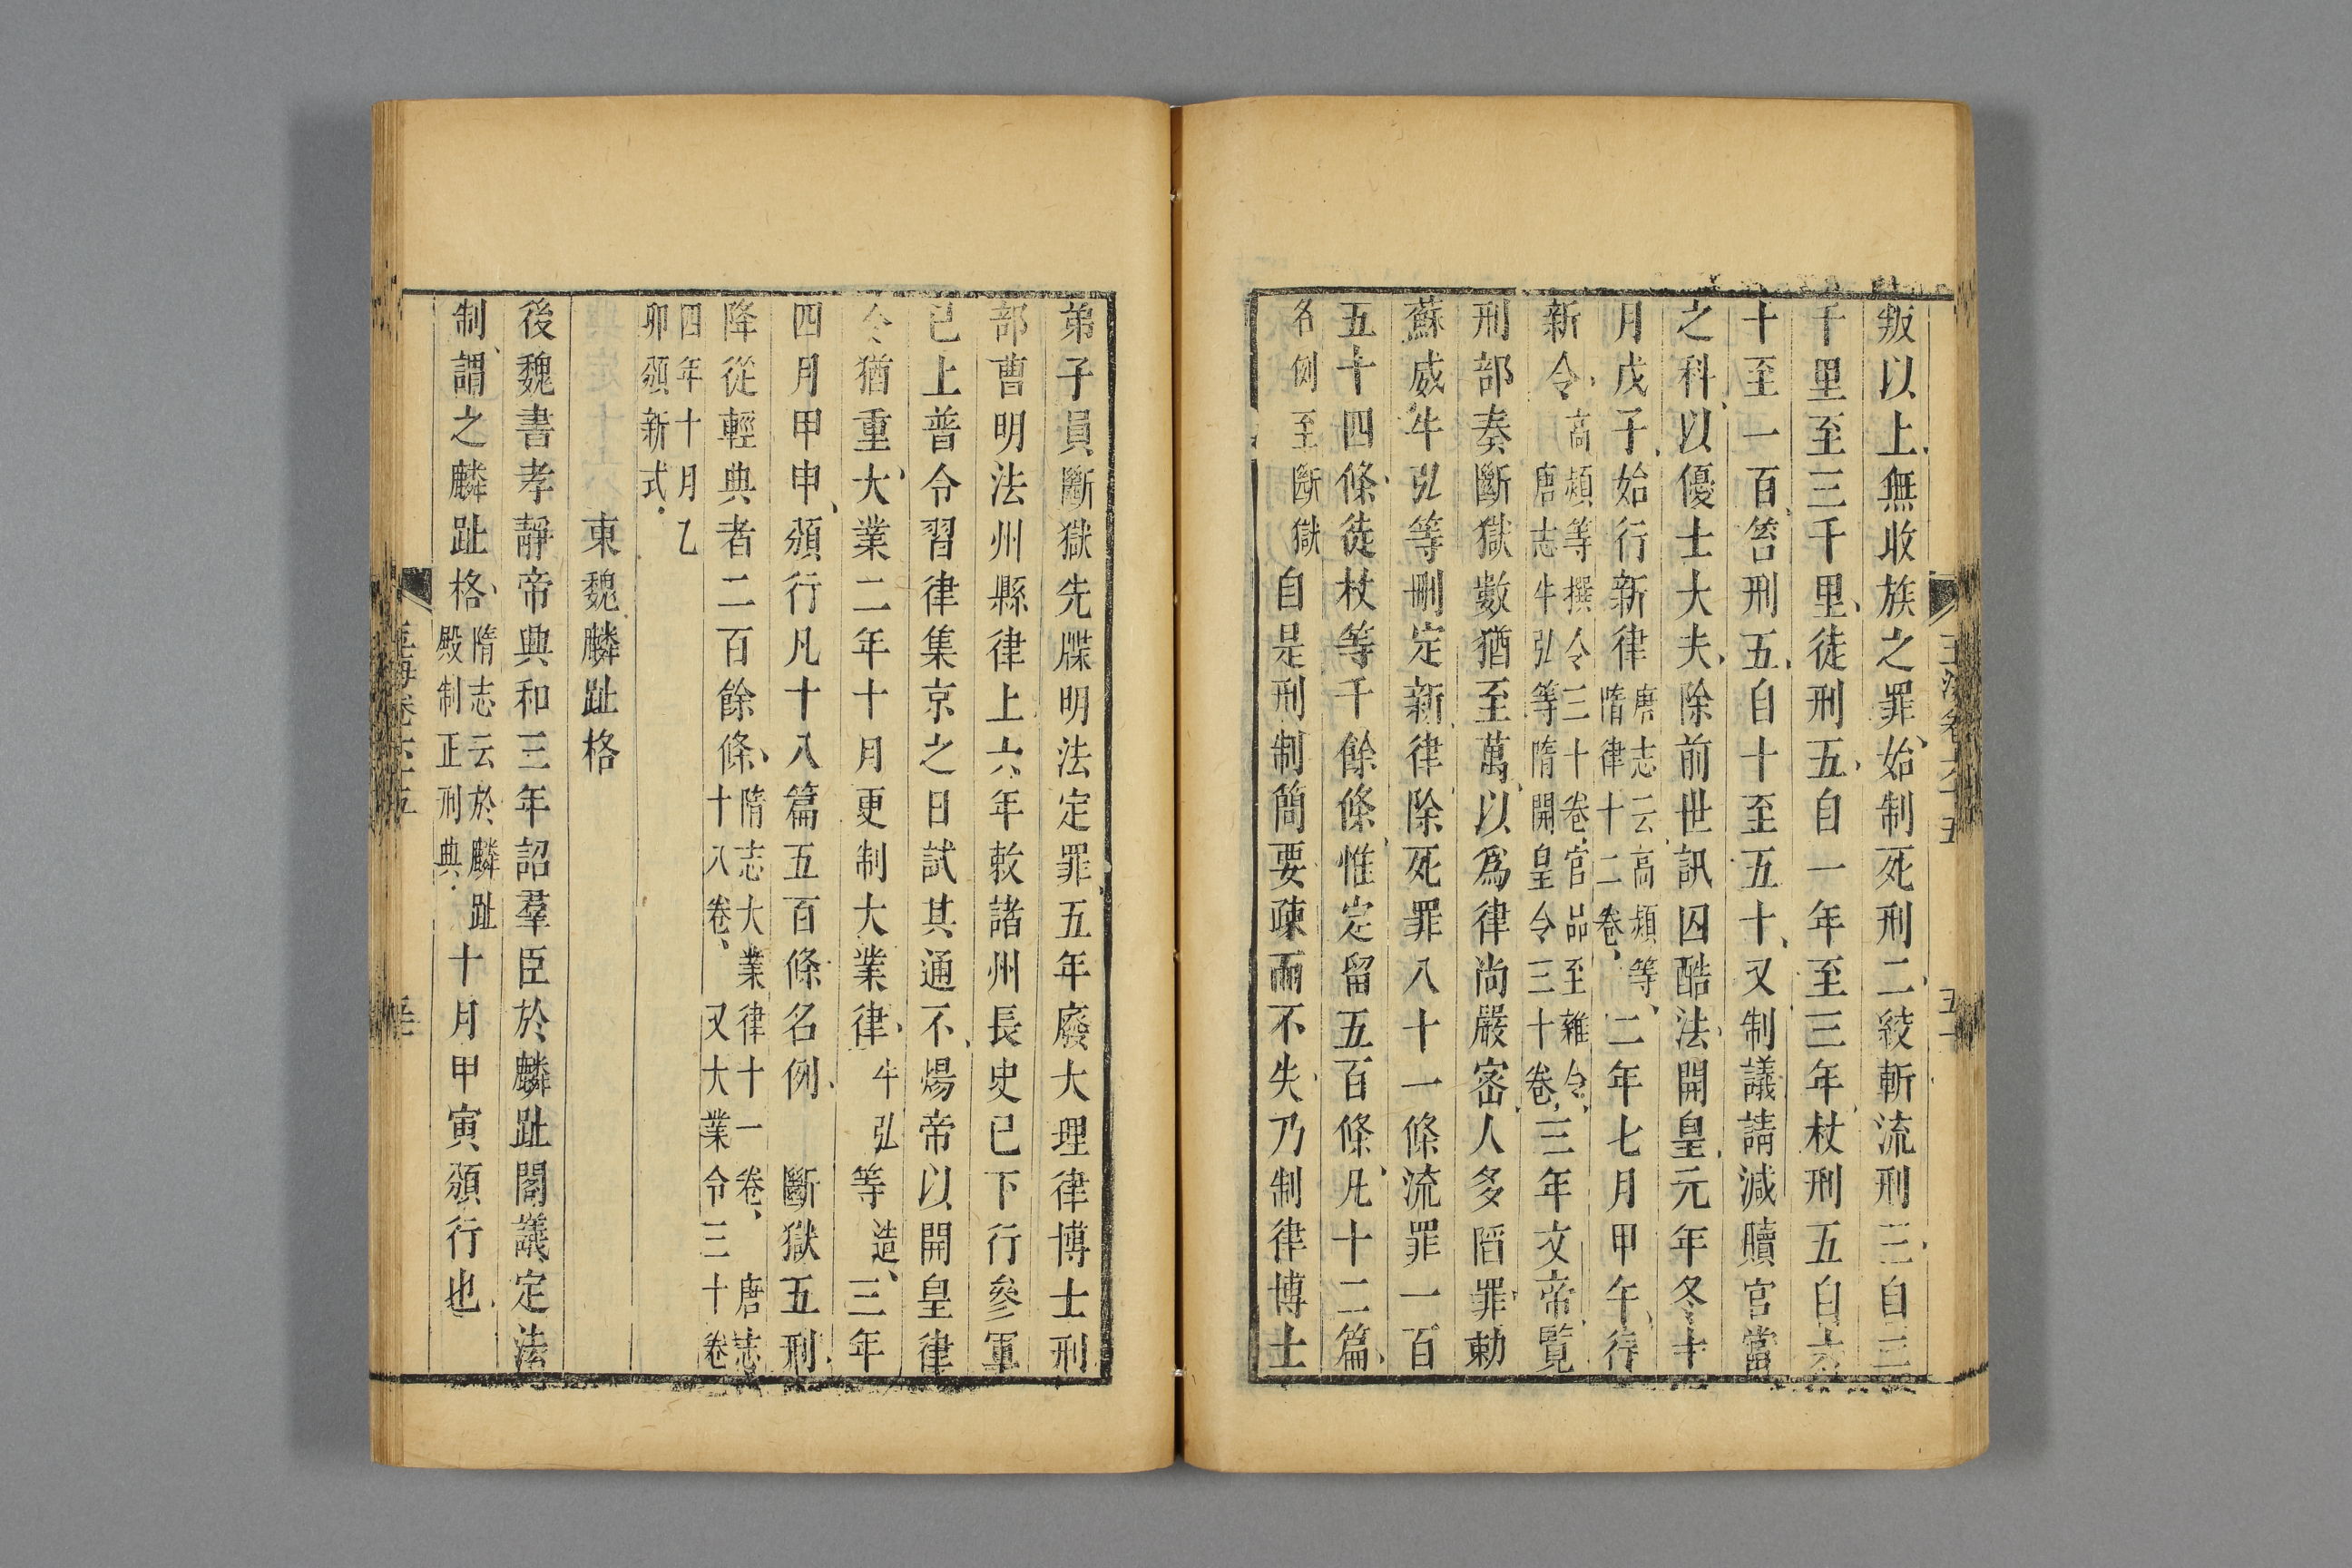 叛以上無收族之罪始制死刑二絞斬流刑三自三
千里至三千里徒刑五自一年至三年杖刑五自六
十至一百笞刑五自十至五十又制議請減贖官當
之科以優士大夫除前世訊囚酷法開皇元年冬十
月戊子始行新律唐志云高熲等隋律十二卷二年七月甲午行
新令高熲等撰令三十卷官品至雜令唐志牛弘等隋開皇令三十卷三年文帝覽
刑部奏斷獄數猶至萬以爲律尚嚴密人多䧟罪勅
蘇威牛弘等刪定新律除死罪八十一條流罪一百
五十四條徒杖等千餘條惟定留五百條凡十二篇
名例至斷獄自是刑制簡要疎而不失乃制律博士
弟子員斷獄先牒明法定罪五年廢大理律博士刑
部曹明法州縣律上六年敕諸州長史已下行參軍
已上普令習律集京之日試其通不煬帝以開皇律
令猶重大業二年十月更制大業律牛弘等造三年
四月甲申頒行凡十八篇五百條名例斷獄五刑
降從輕典者二百餘條隋志大業律十一卷唐志十八卷又大業令三十卷
四年十月乙卯頒新式
東魏麟趾格
後魏書孝靜帝興和三年詔羣臣於麟趾閣議定法
制謂之麟趾格隋志云於麟趾殿制正刑典十月甲寅頒行也